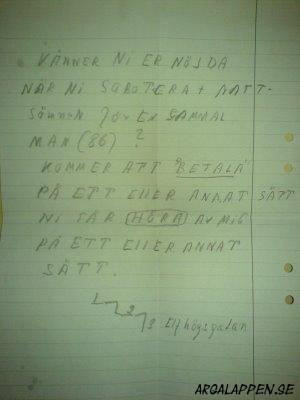 KÄNNER NI ER NÖJDA
NÄR NI SABOTERAT NATT-
SÖMNEN FÖR EN GAMMAL
MAN (86) ?
KOMMER ATT "BETALA"
PÅ ETT ELLER ANNAT SÄTT
NI FÅR HÖRA AV MIG
PÅ ETT ELLER ANNAT
SÄTT.
Elfhögsgatan
ARGALAPPEN.SE